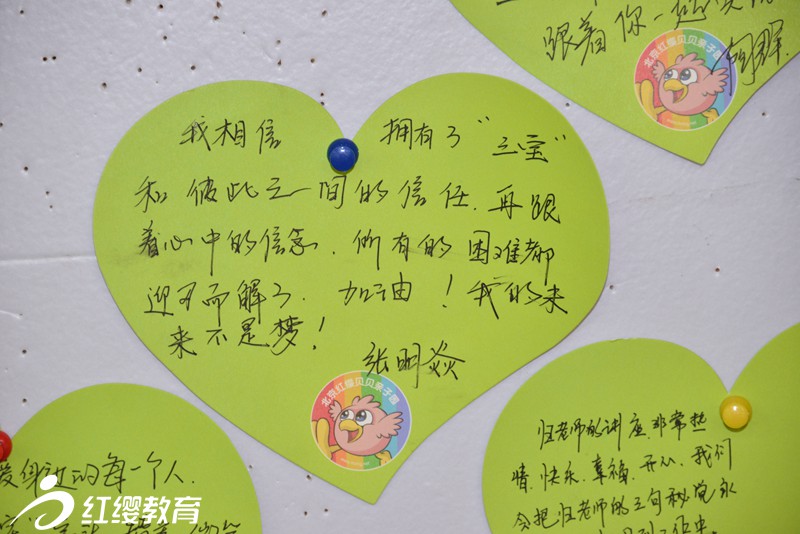 跟着你一起
北京红缨贝贝亲子园
我相信 拥有了"三宝"
和彼此之间的信任,再跟
着心中的信念,所有的困难都
迎刃而解了,加油!我的未
来不是梦!
张明焱
北京红缨贝贝亲子园
爱身边的每一个人,
红缨教育
归老师的讲座,非常热
情、快乐、幸福、开心,我们
会把归老师的三句秘诀永